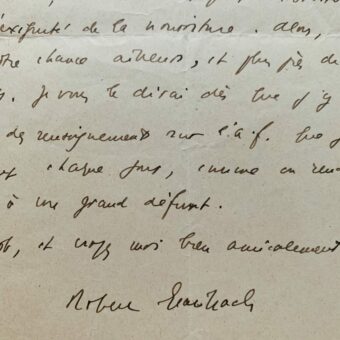 exiguité de la nourriture. Alors,
tre chance ailleurs, et plus près de
Je vous le dirai dès que j'y
des renseignements sur l'a.f. que
chaque jour, comme on ren
à un grand défunt.
ob, et moi bien amicalement
Robert